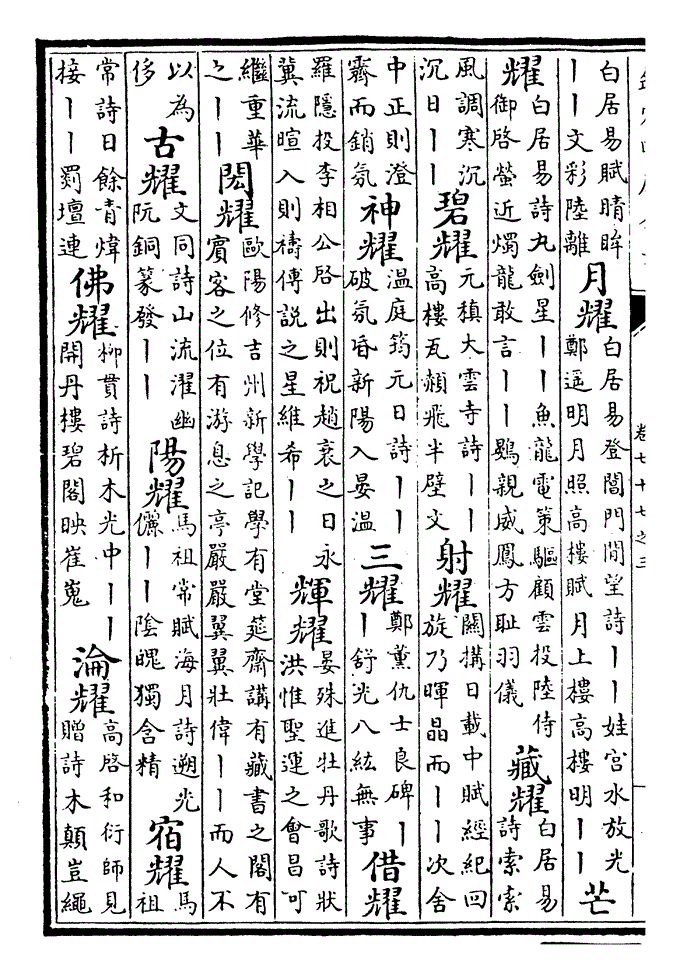 卷七十七之三
白居易賦晴眸
丨丨文彩陸離
月耀
白居易登閶門閒望詩丨丨娃宮水放光
鄭遥明月照高樓賦月上樓高樓明丨丨
芒
耀
白居易詩丸劍星丨丨魚龍電策驅顧雲投陸侍
御啓螢近燭龍敢言丨丨鷃親威鳳方耻羽儀
藏耀
白居易
詩索索
風調寒沉
沉日丨丨
碧耀
元稹大雲寺詩丨丨
高樓瓦頳飛半壁文
射耀
闕搆日載中賦經紀回
旋乃暉晶而丨丨次舍
中正則澄
霽而銷氛
神耀
温庭筠元日詩丨丨
破氛昏新陽入晏温
三耀
鄭薰仇士良碑丨
丨舒光八紘無事
借耀
羅隱投李相公啓出則祝趙衰之日永
冀流暄入則禱傅説之星維希丨丨
輝耀
晏殊進牡丹歌詩狀
洪惟聖運之會昌可
繼重華
之丨丨
閎耀
歐陽修吉州新學記學有堂筵齋講有藏書之閣有
賓客之位有游息之亭嚴嚴翼翼壯偉丨丨而人不
以為
侈
古耀
文同詩山流濯幽
阮銅篆發丨丨
陽耀
馬祖常賦海月詩遡光
儷丨丨陰魄獨含精
宿耀
馬
祖
常詩日餘青煒
接丨丨罽壇連
佛耀
柳貫詩析木光中丨丨
開丹樓碧閣映崔嵬
淪耀
高啓和衍師見
贈詩木顛豈繩